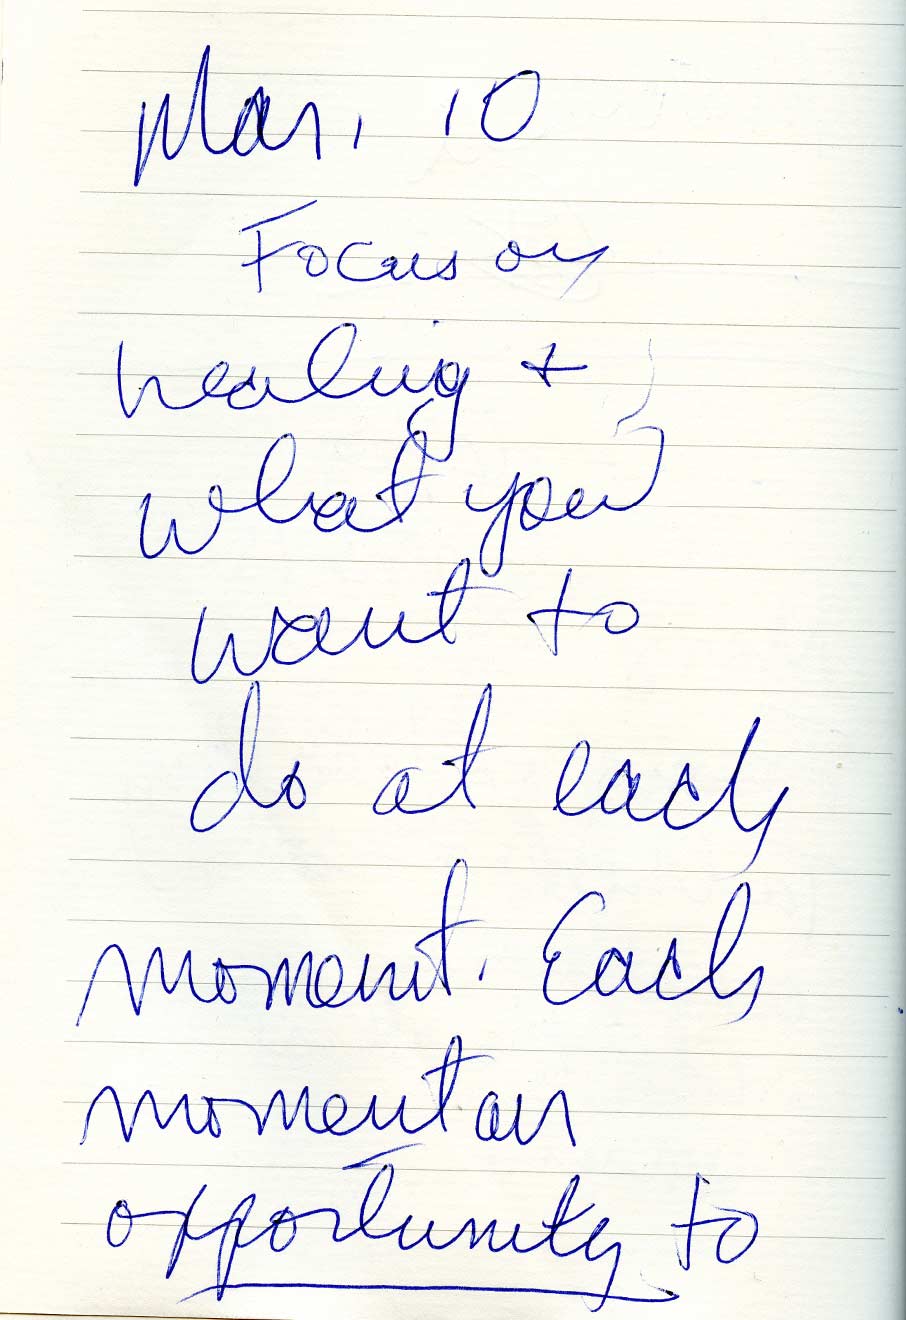 Mar. 10
Focus on
healing +
what you
want to
do at each
moment. Each
moment an
opportunity to